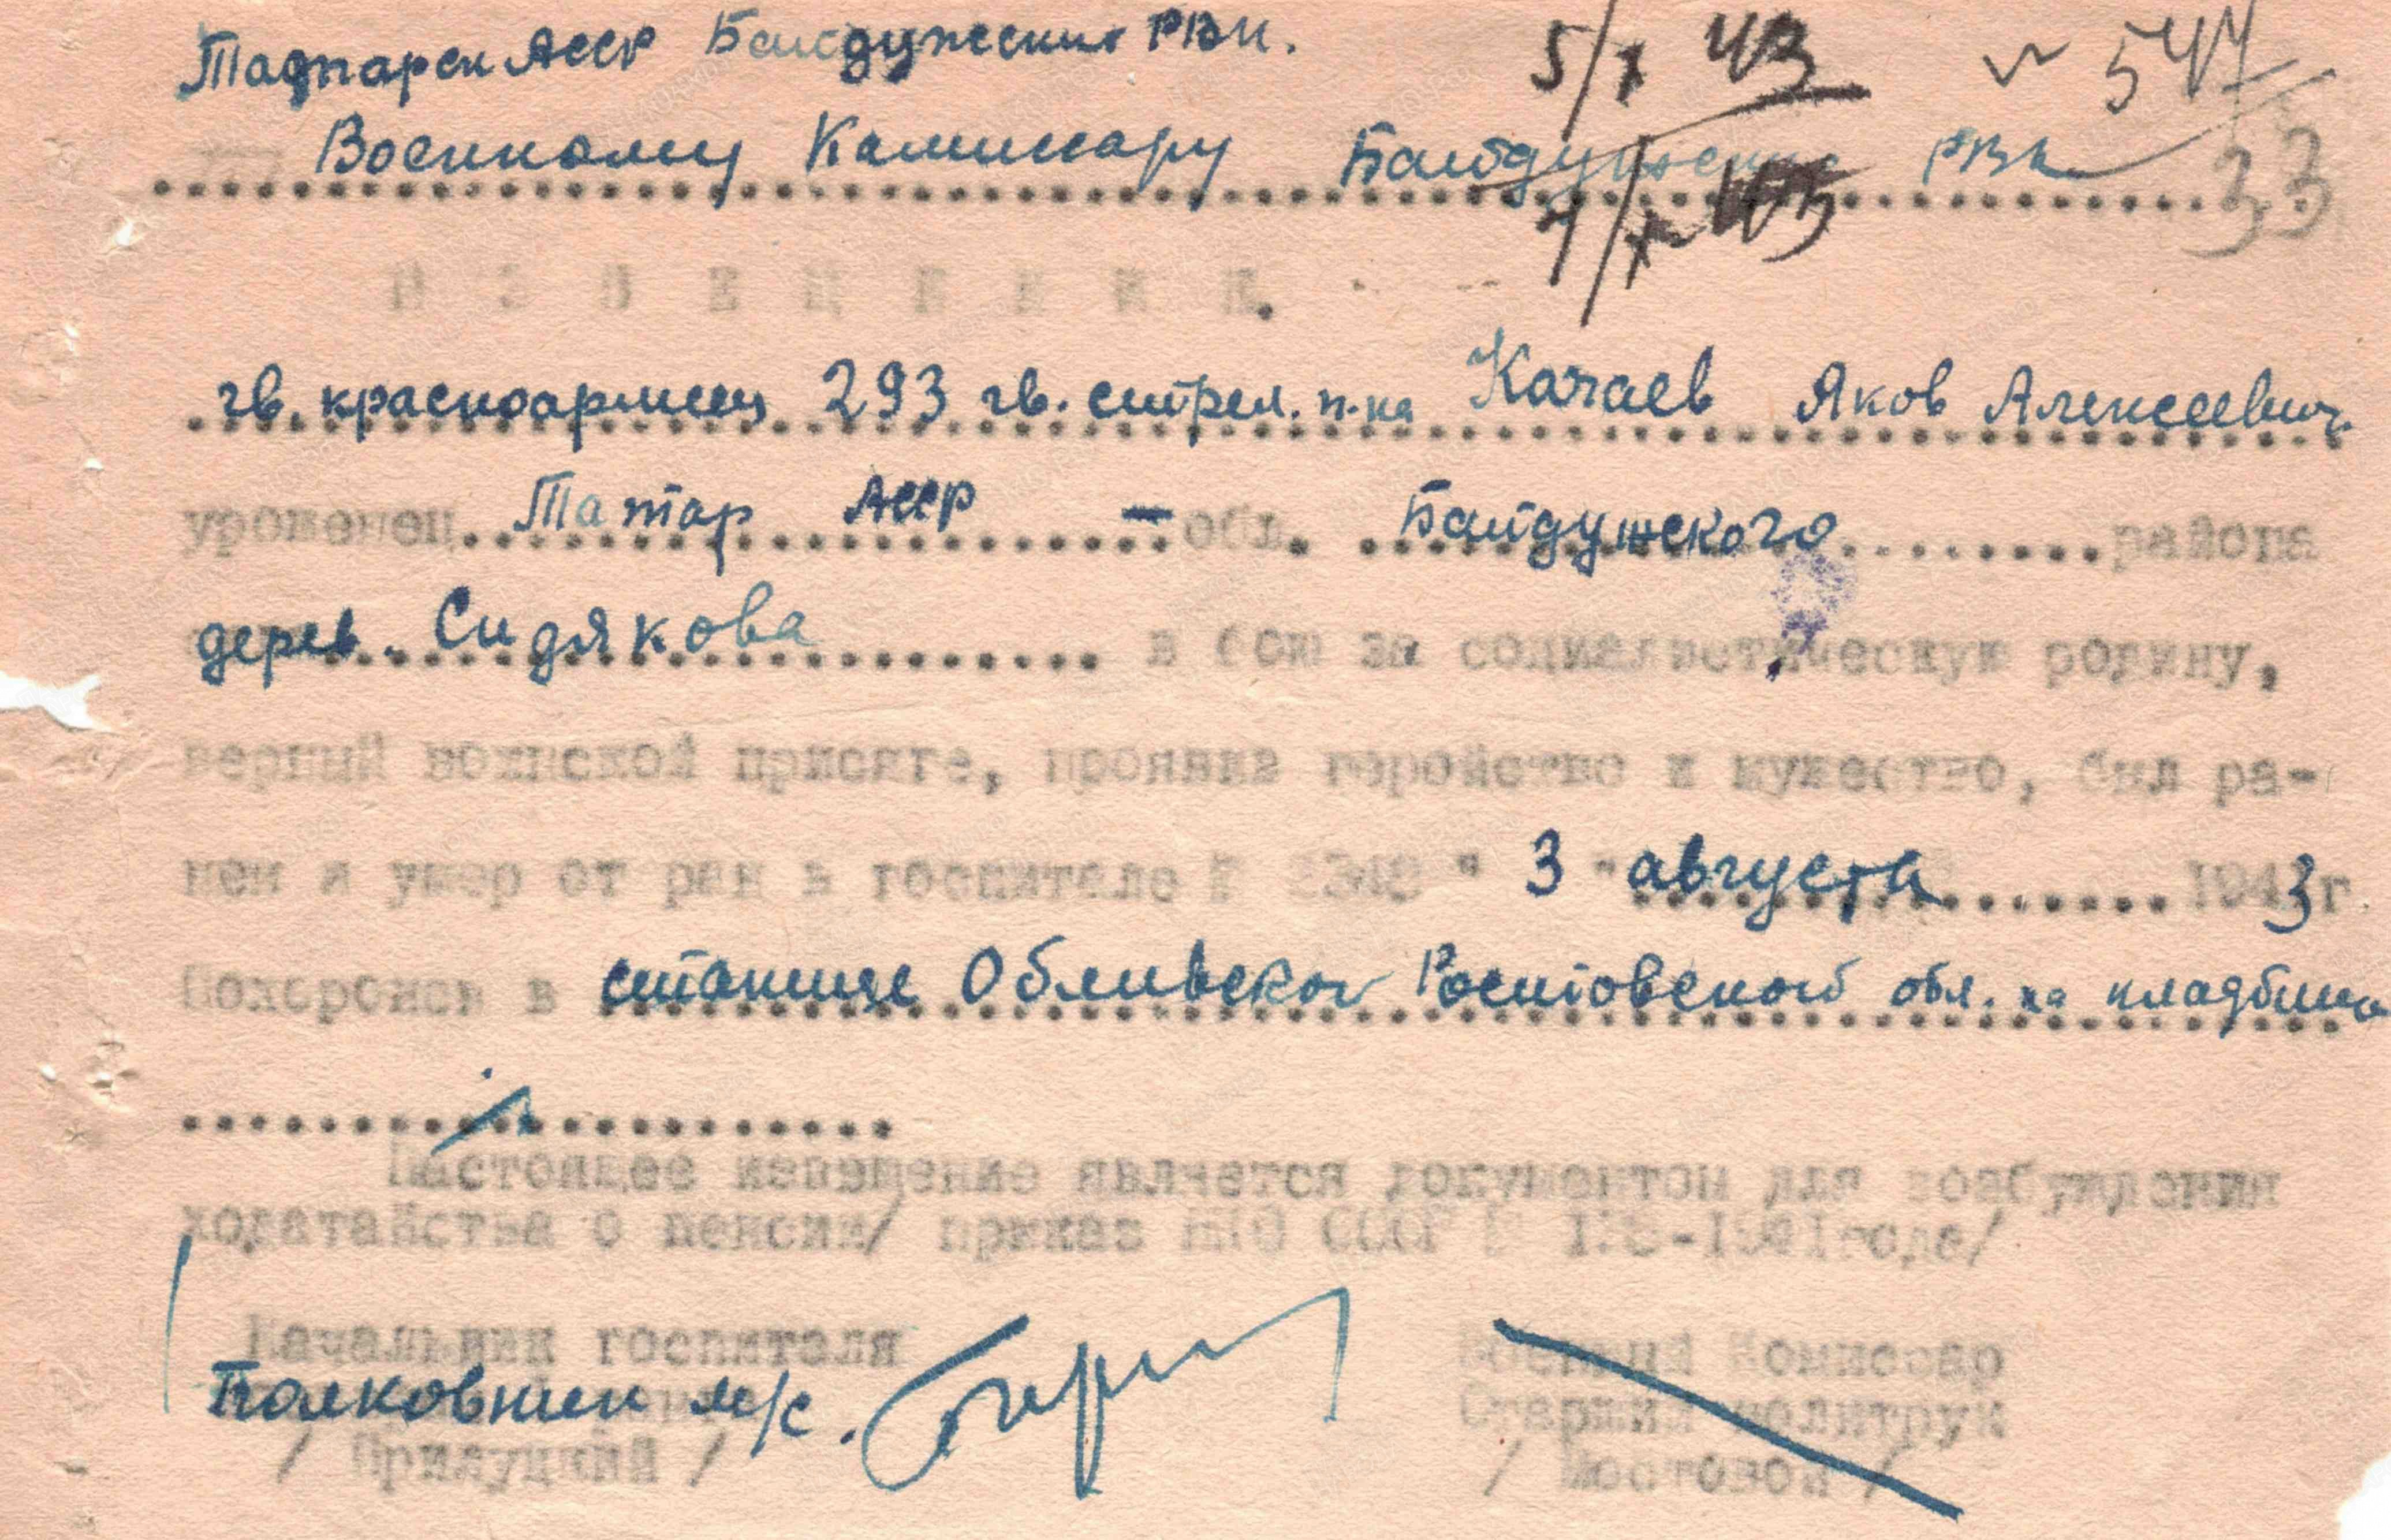 Татарск АССР Байдужеский РВК.
5/X 43
№ 544
Военному Комиссару Байдужеский РВК
33
7/X 43
ИЗВЕЩЕНИЕ.
гв. красноармеец 293 гв. стрел. п-ка Качаев Яков Алексеевич.
уроженец Татар АССР — обл. Байдужского района
дерев. Сидякова в бою за социалистическую родину,
верный воинской присяге, проявив геройство и мужество, был ра-
нен и умер от ран в госпитале № " 3 " августа 1943г.
Похоронен в станице Обливской Ростовской обл. на кладбище
Настоящее извещение является документом для возбуждения
ходатайства о пенсии/ приказ НКО СССР № года/
Начальник госпиталя
Военный Комиссар
Полковник м/с.
Старший политрук
/ Прилуцкий /
/ Мостовой /